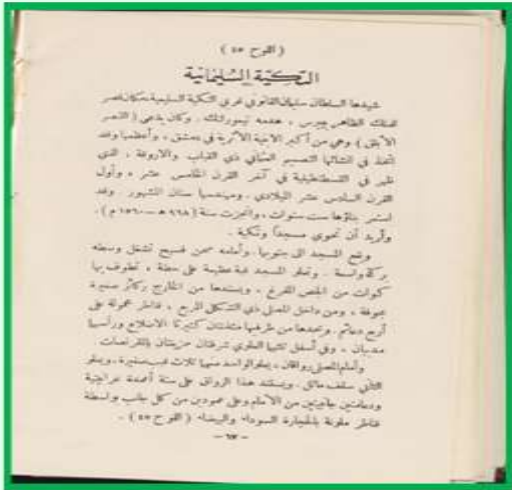 ( اللوح ٤٥ )
التكية السليمانية
شيدها السلطان سليمان القانوني غربي التكية السليمية مكان قصر
الملك الظاهر بيبرس ، هدمه تيمورلنك . وكان يدعى ( القصر
الأبلق ) وهي من أكبر الابنية الأثرية في دمشق ، وأعظمها وقد
اتخذ في انشائها التصميم العثماني ذي القباب والاروقة ، الذي
ظهر في القسطنطينية في آخر القرن الخامس عشر ، وأول
القرن السادس عشر الميلادي . ومهندسها سنان المشهور . وقد
استمر بناؤها ست سنوات ، وانجزت سنة ( ٩٦٨ هـ — ١٥٦٠ م ) .
وأريد أن تحوي مسجداً وتكية .
ويقع المسجد الى جنوبها . وأمامه صحن فسيح تشغل وسطه
بركة واسعة . وتعلو المسجد قبة عظيمة على ، تطوف بها
كوات من الجص المفرغ ، ويسندها من الخارج ركائز صغيرة
مجوفة ، ومن داخل المصلى ذي الشكل المربع ، قناطر محمولة على
أربع دعائم . ويحدها من طرفيها مئذنتان كثيرتا الاضلاع ورأسهما
مدببان ، وفي أسفل ثلثيها العلوي شرفتان مزينتان بالمقرنصات
وأمام المصلى رواقان ، يعلو الواحد منهما ثلاث قبب صغيرة . ويعلو
الثاني سقف مائل . ويستند هذا الرواق على ستة أعمدة
ودعامتين جانبيتين من الامام وعلى عمودين من كل جانب بواسطة
قناطر ملونة بالحجارة السوداء والبيضاء ( اللوح ٤٥ ) .